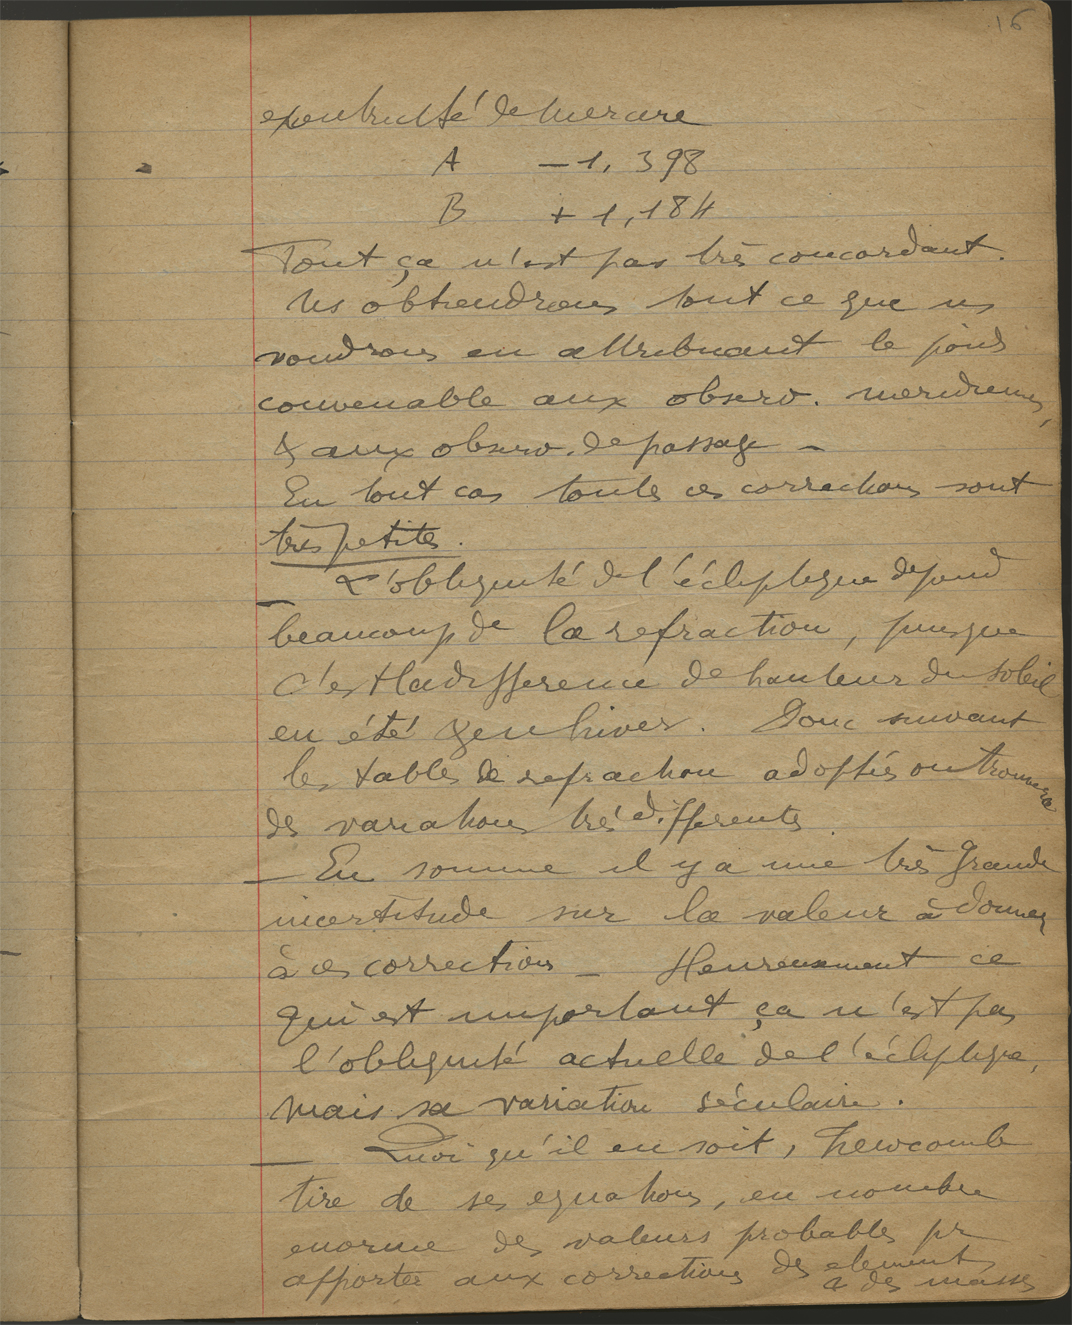 16
excentricité de Mercure
A — 1, 398
B + 1, 184
Tout ça n'est pas très concordant.
Ns obtiendrons tout ce que ns
voudrons en attribuant le poids
convenable aux observ. meridiennes,
& aux observ. de passage —
En tout cas toutes ces corrections sont
très petites.
— L'obliquité de l'écliptique depend
beaucoup de la refraction, puisque
c'est la difference de hauteur du soleil
en été & en hiver. Donc suivant
les tables de refraction adoptées on trouvera
des variations très differentes
— En somme il y a une très grande
incertitude sur la valeur à donner
à ces corrections — Heureusement ce
qui est important ça n'est pas
l'obliquité actuelle de l'écliptique,
mais sa variation séculaire.
— Quoi qu'il en soit, Newcomb
tire de ses equations, en nombre
enorme des valeurs probables pr
apporter aux corrections des elements
& des masses